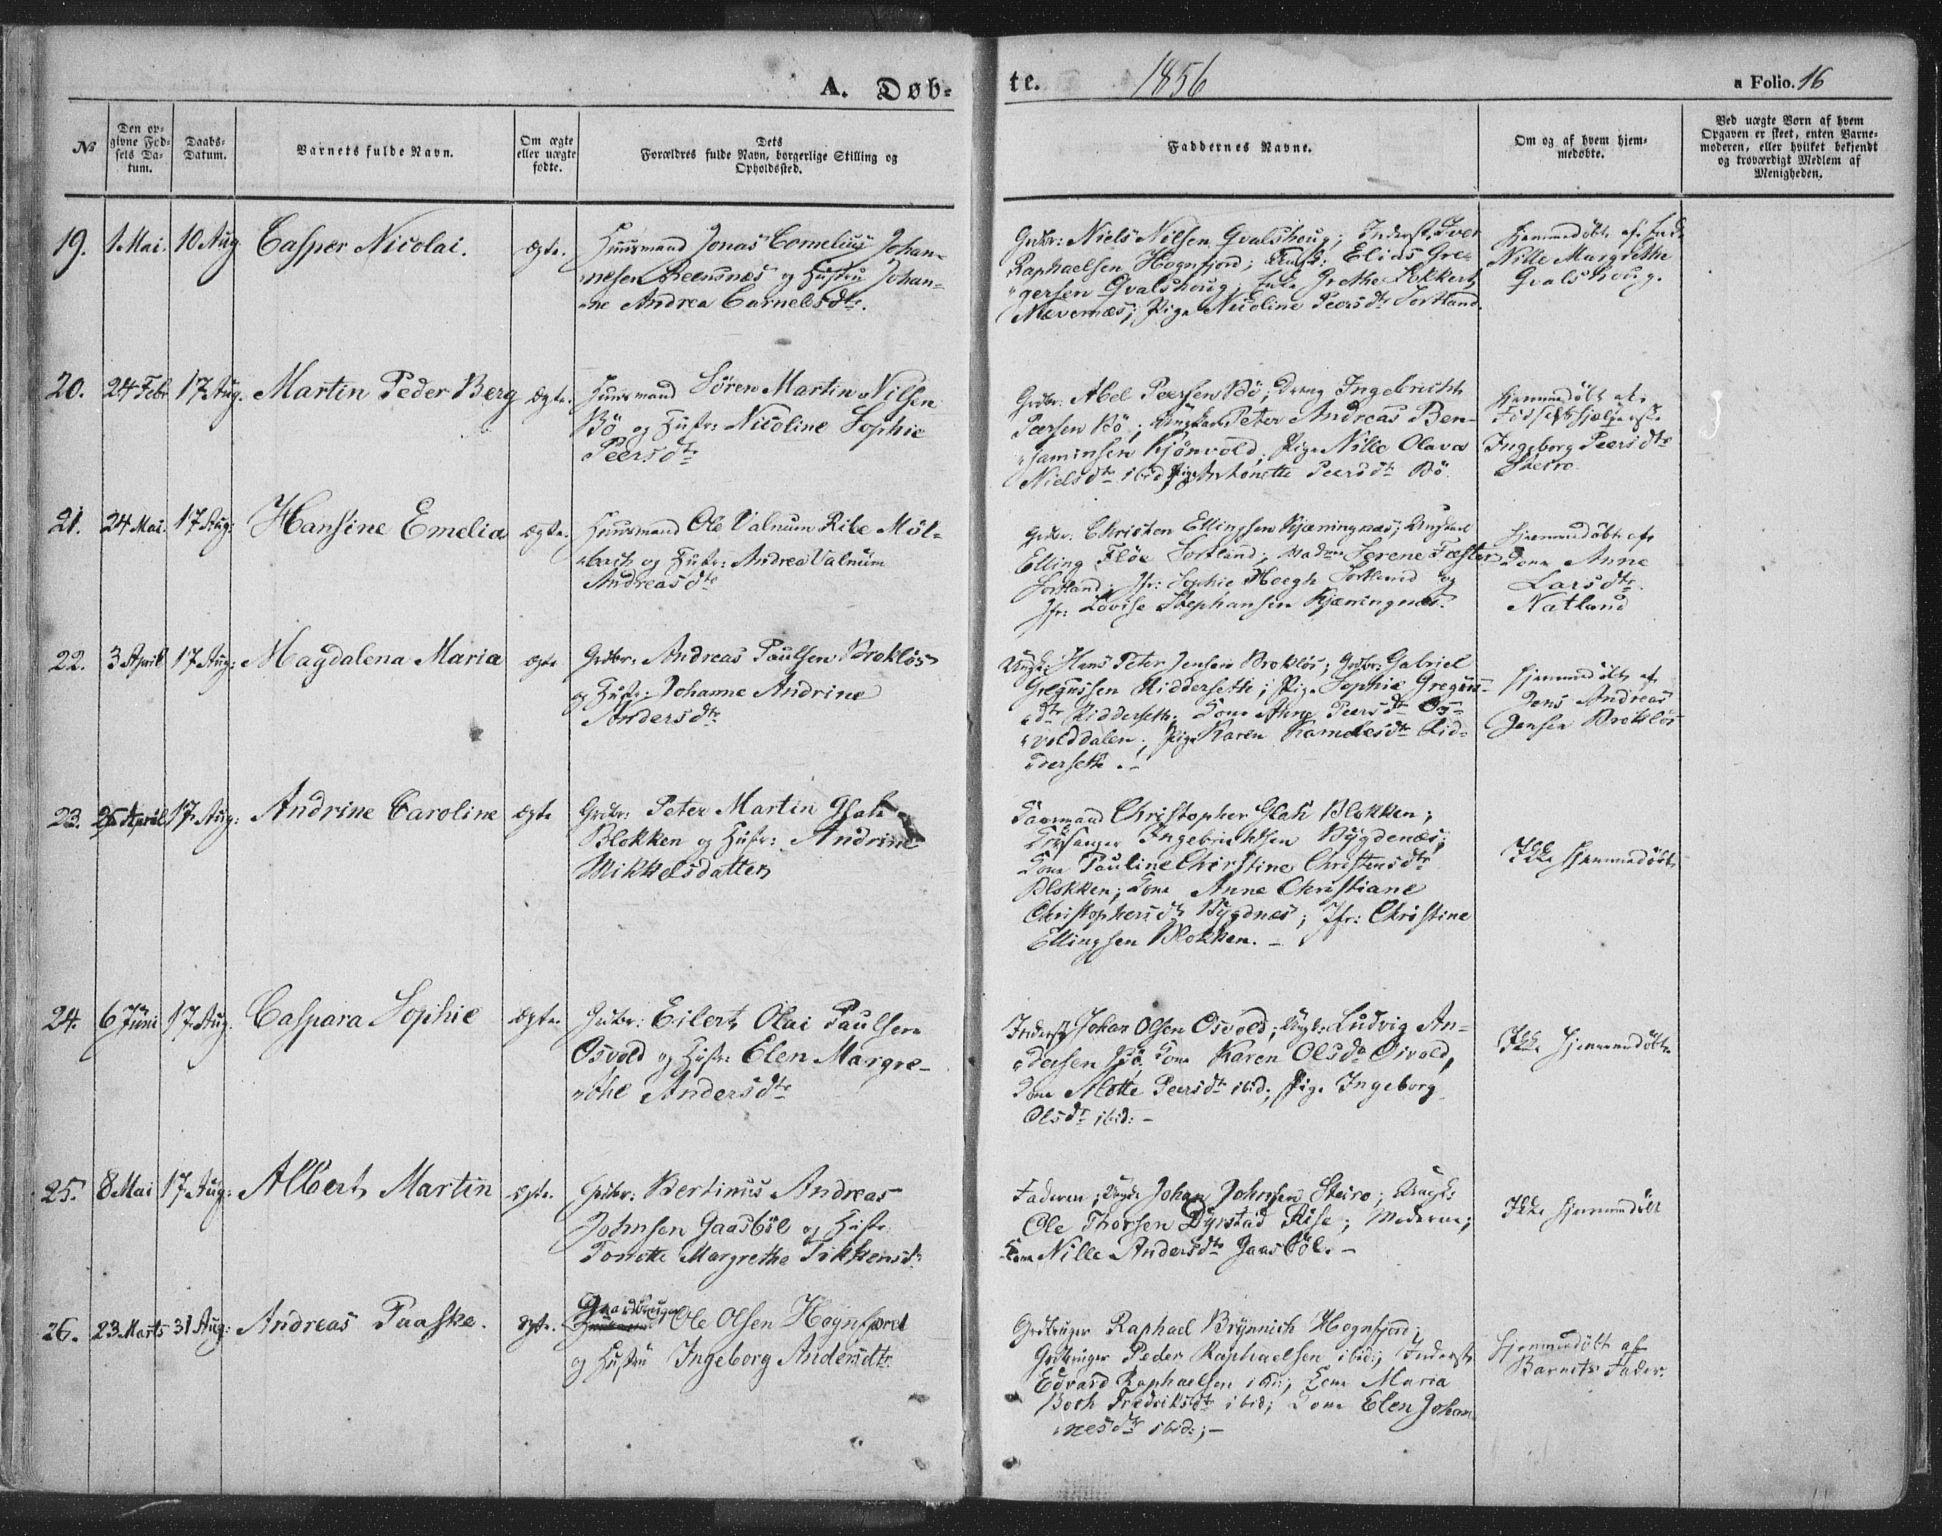 A. Døb-
te. 1856
a Folio. 16
No
Den op-
givne Fød-
sels Da-
tum.
Daabs-
Datum.
Barnets fulde Navn.
Om ægte
eller uægte
fødte.
Dets
Forældres fulde Navn, borgerlige Stilling og
Opholdssted.
Faddernes Navne.
Om og af hvem hjem-
medøbte.
Ved uægte Børn af hvem
Opgaven er skeet, enten Barne-
moderen, eller hvilket bekjendt
og troværdigt Medlem af
Menigheden.
19. 1 Mai. 10 Aug Casper Nicolai. ægte.
Huusmand Jonas Cornelius Johan-
nesen Reensnes og Hustru Johan-
ne Andrea Carnelsdtr.
Grbr: Niels Nilsen Qvalshoug; Inderst Iver
Raphaelsen Hognfjord; Elias Gre-
gersen Qvalshoug; Enke Grethe Lokkert
Nævernæs; Pige Nicoline Peersdtr Sortland.
Hjemmedøbt af
Nille Margrethe
Qvalshoug.
20. 24 Febr 17 Aug. Martin Peder Berg ægte.
Huusmand Sören Martin Nilsen
Bö og Hustr: Nicoline Sophie
Peersdtr
Grbr: Abel Peersen Bö; Dreng Ingebricht
Peersen Bö; Ungkarl Peter Andreas Ben-
jaminsen Kjönvold; Pige Nille Olava
Nielsdtr ibid; Pige Antonette Peersdtr Bö
Hjemmedøbt af
Ingeborg Peersdtr
Steiro
21. 24 Mai. 17 Aug: Hansine Emelia ægte.
Huusmand Ole Valnum Ribe Möl-
bach og Hustr: Andrea Valnum
Andreasdtr
Grbr: Christen Ellingsen Kjæningnæs; Ungkarl
Elling Flöe Sortland; Madm Serene Fæster
Sortland; Jfr: Sophie Hoegh Sortland og
Jfr: Lovise Stephansen Kjæningnæs.
Hjemmedøbt af
Kone Anne
Larsdtr
Natland
22. 3 April 17 Aug: Magdalena Maria ægte
Grbr: Andreas Paulsen Broklös
og Hustr: Johanne Andrine
Andersdtr
Ungk: Hans Peter Jensen Broklös; Grbr: Gabriel
Gregusen Riddersette; Pige Sophie Gregus-
dtr Riddersette; Kone Anne Peersdtr Os-
volddalen; Pige Karen Kornelesdtr Rid-
dersette.-
Hjemmedøbt af
Jens Andreas
Jensen Broklös
23. 25 April 17 Aug: Andrine Caroline ægte
Grbr: Peter Martin Glah
Blokken og Hustr: Andrine
Mikkelsdatter
Gaarmand Christopher Glah Blokken;
Kirksanger Ingebrichtsen Bygdenæs;
Kone Pauline Christine Christensdtr
Blokken; Kone Anne Christiane
Christophersdtr Bygdnæs; Jfr: Christine
Ellingsen Blokken.-
Ikke hjemmedøbt
24. 6 Juni 17 Aug. Caspara Sophie ægte.
Grbr: Eilert Olai Paulsen
Osvold og Hustr: Elen Margre-
the Andersdtr
Inderst Johan Olsen Osvold; Ungk: Ludvig An-
dersen Bö; Kone Karen Olsdtr Osvold,
Kone Alette Peersdtr ibid; Pige Ingeborg
Olsdtr ibid:-
Ikke Hjemmedøbt
25. 8 Mai 17 Aug: Albert Martin ægte.
Grbr: Bertinus Andreas
Johnsen Gaasböl og Hustr
Tonette Margrethe Tikkensdtr
Faderen; Ungk: Johan Johnsen Steiro; Ungk:
Ole Thorsen Dyrstad Rise; Moderen;
Kone Nille Andersdtr Gaasböl.-
Ikke Hjemmedøbt
26. 23 Marts 31 Aug: Andreas Paaske. ægte.
Gaardbruger Ole Olsen Hognfjord
og Hustru Ingeborg Andersdtr
Grbruger Raphael Brynnich Hognfjord;
Grbruger Peder Raphaelsen ibid; Inderst
Edvard Raphaelsen ibid; Kone Maria
Both Fredriksdtr ibid; Kone Elen Johan-
nesdtr ibid:;-
Hjemmedøbt af
Barnets Fader.